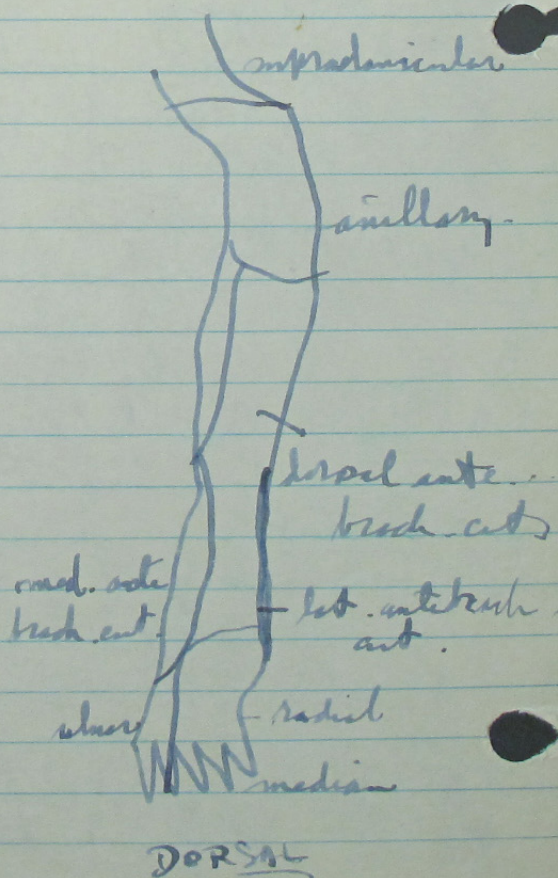 supraclavicular
axillary.
dorsal ante.
brach. cut
med. ante
brach. cut.
lat. antebrach
cut.
ulnar
radial
median
DORSAL